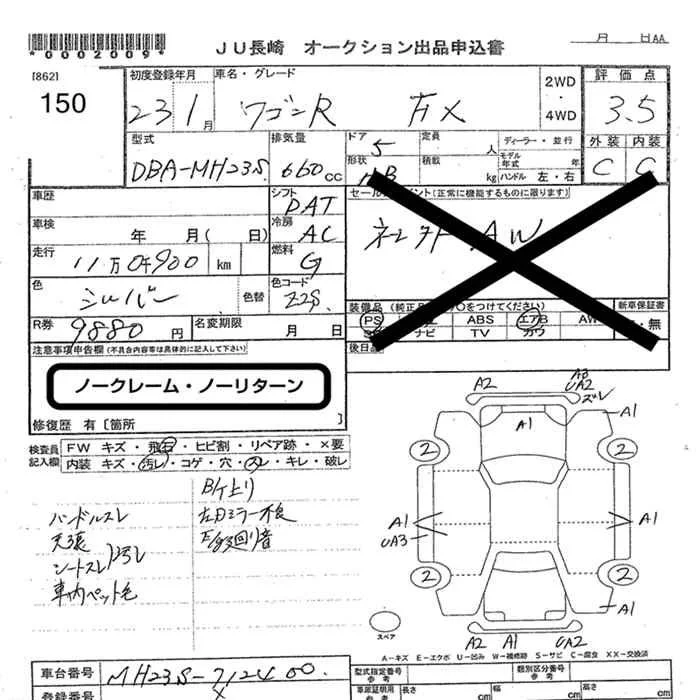 *0002009*
JU長崎 オークション出品申込書
月 日AA
[862]
150
初度登録年月 車名・グレード 2WD・4WD 評価点
23 1月 ワゴンR FX 3.5
型式 排気量 ドア 定員 人 ディーラー・並行 外装 内装
DBA-MH23S 660cc 5
形状 積載 kg モデル年式 年 ハンドル 左・右 C C
車歴 シフト セールスポイント(正常に機能するものに限ります)
DAT
車検 年 月( 日) 冷房 AC AW
走行 11万0900 km 燃料 G
色 シルバー 色替 色コード Z2S
装備品 (純正品のみ○をつけてください) 新車保証書
PS ABS エアB AW ・無
ナビ TV カワ
R券 9880円 名変期限 月 日
後日品
注意事項申告欄(不具合内容等は具体的に記入して下さい)
ノークレーム・ノーリターン
修復歴 有 [箇所 ]
検査員記入欄 FW キズ・飛石・ヒビ割・リペア跡・×要
内装 キズ・汚レ・コゲ・穴・スレ・キレ・破レ
ハンドルスレ
天張
シートスレ汚レ
車内ペット毛
B/ケ上り
左Dミラー不良
廻り音
A2 A3 UA2 ズレ
A1 A1
2 2
A1 A1
UA3
2 2
A1
A2 A1 UA2
スペア
A-キズ E-エクボ U-凹み W-補修跡 S-サビ C-腐食 XX-交換済
車台番号 MH23S-712400
型式指定番号 参考 類別区分番号 参考
登録番号
車庫証明用 参考 長さ cm 幅 cm 高さ cm